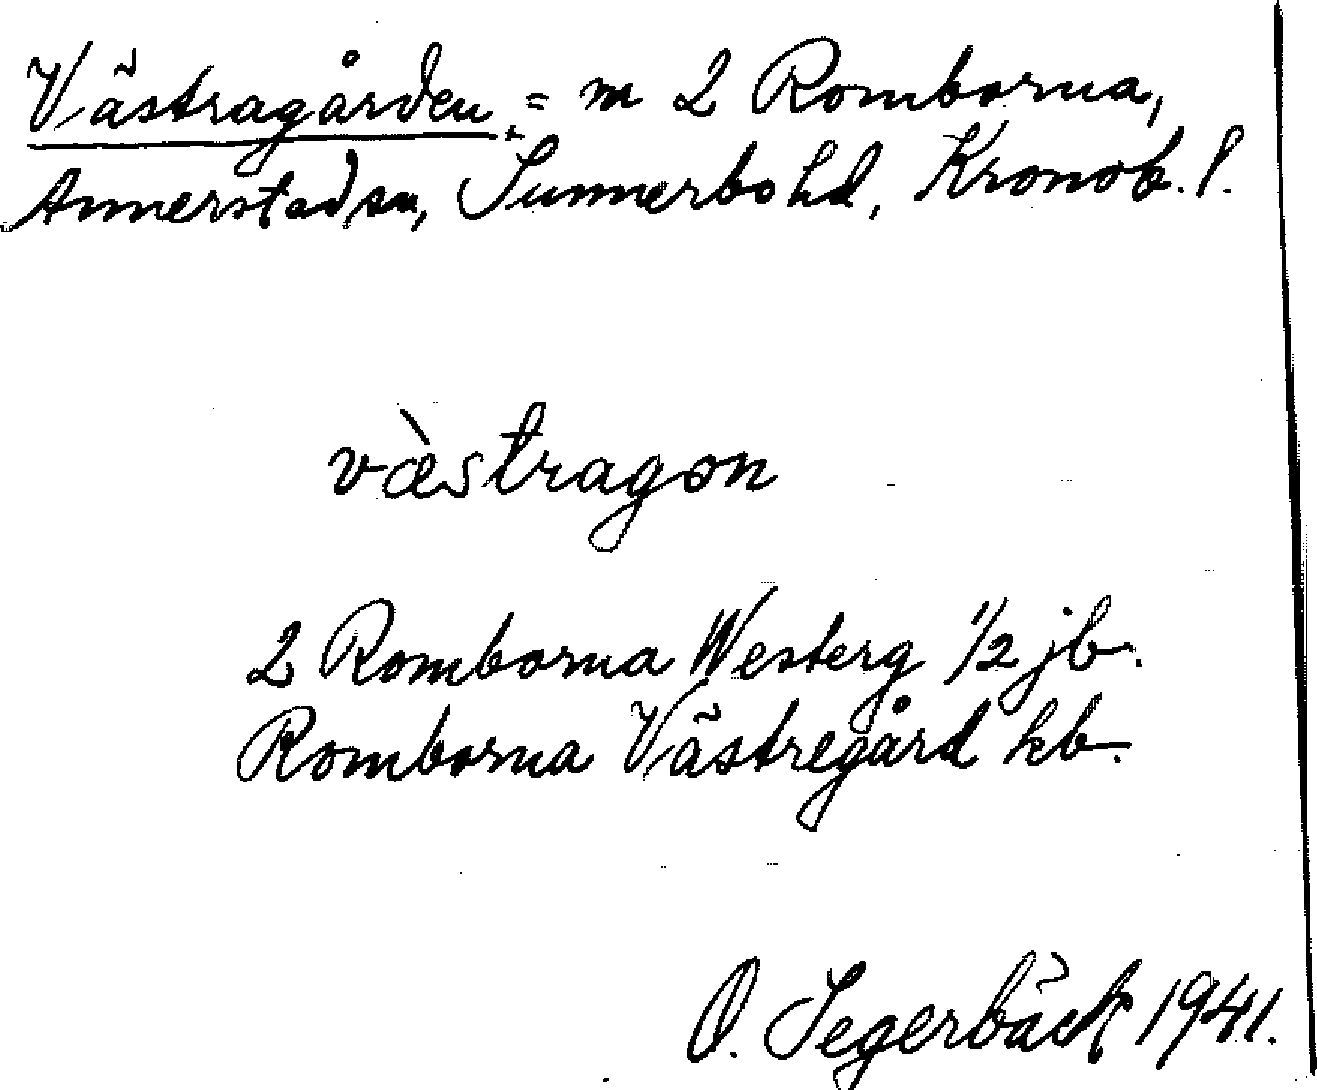 Västragården, = m 2 Romborna,
Annerstad sn, Sunnerbo hd, Kronob. l.
væ̀stragon
2 Romborna Westerg 1/2 jb.
Romborna Västregård kb.
O. Segerbäck 1941.